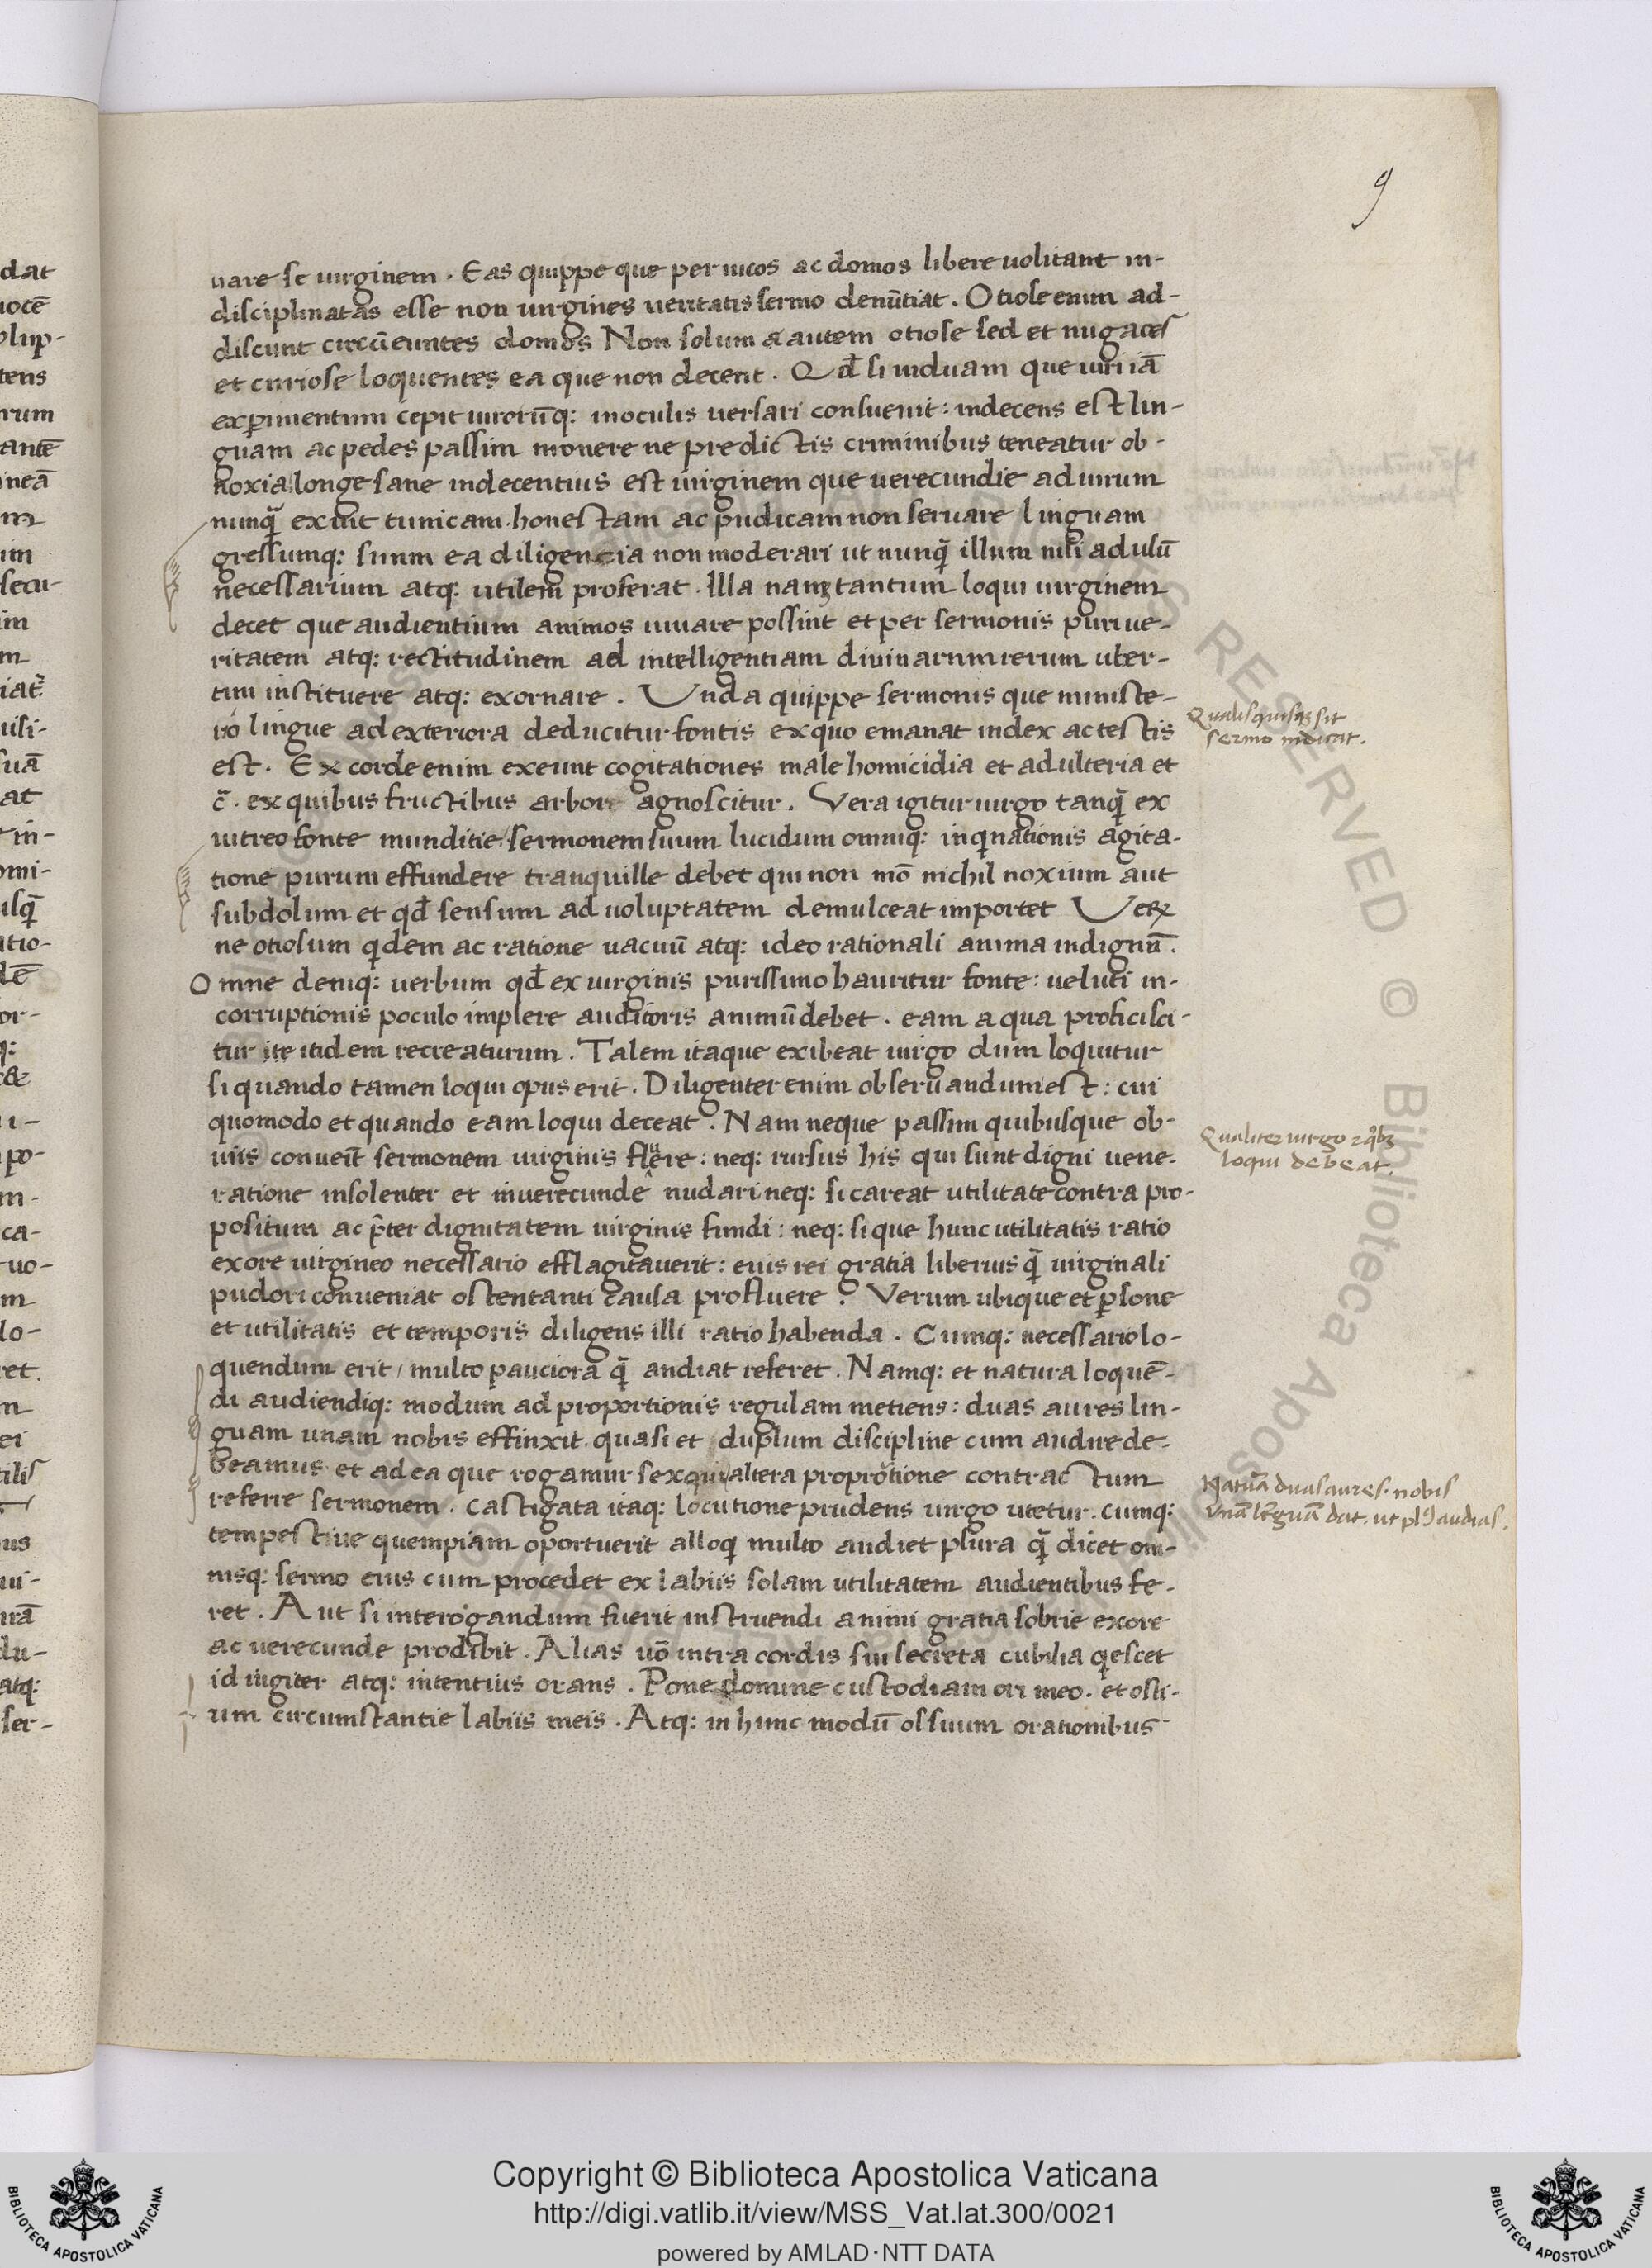 9
uare se uirginem . Eas quippe que per uicos ac domos libere uolitant in-
disciplinatas esse non uirgines ueritatis sermo denūtiat . Otiose enim ad-
discunt circūeuntes domos Non solum a autem otiose sed et nugaces
et curiose loquentes ea que non decent . Qđ si uiduam que uiri iā
exꝑimentum cepit uirorūq: in oculis uersari consueuit : indecens est lin-
guam ac pedes passim mouere ne predictis criminibus teneatur ob-
noxia longe sane indecentius est uirginem que uerecundie ad unum
nunq̄ exuit tunicam . honestam ac pudicam non seruare linguam
gressumq: suum ea diligencia non moderari ut nunq̄ illum nisi ad usū
necessarium atq: utilem proferat . Illa nanꝫ tantum loqui uirginem
decet que audientium animos iuuare possint et per sermonis puri ue-
ritatem atq: rectitudinem ad intelligentiam diuinarum rerum uber-
tim instituere atq: exornare . Unda quippe sermonis que ministe-
rio lingue ad exteriora deducitur fontis ex quo emanat index ac testis
est . Ex corde enim exeunt cogitationes male homicidia et adulteria et
c̄ . ex quibus fructibus arbor agnoscitur . Vera igitur uirgo tanq̄ ex
uitreo fonte munditie / sermonem suum lucidum omniq: inqinationis agita-
tione purum effundere tranquille debet qui non mō nichil noxium aut
subdolum et qđ sensum ad uoluptatem demulceat importet Ueꝝ
ne otiosum qdem ac ratione uacuū atq: ideo rationali anima indignū .
Omne deniq: uerbum qđ ex uirginis purissimo hauritur fonte : ueluti in-
corruptionis poculo implere auditoris animū debet . eam a qua proficisci-
tur ite itidem recreaturum . Talem itaque exibeat uirgo dum loquitur
si quando tamen loqui opus erit . Diligenter enim obseruandum est : cui
quomodo et quando eam loqui deceat . Nam neque passim quibusque ob-
uiis conueīt sermonem uirginis fluere : neq: rursus his qui sunt digni uene-
ratione insolenter et inuerecunde nudari neq: si careat utilitate contra pro-
positum ac p̄ter dignitatem uirginis fundi : neq: si que hunc utilitatis ratio
ex ore uirgineo necessario efflagitauerit : eius rei gratia liberius q̄ uirginali
pudori conueniat ostentanti causa profluere . Verum ubique et ꝑsone
et utilitatis et temporis diligens illi ratio habenda . Cumq: necessario lo-
quendum erit / multo pauciora q̄ audiat referet . Namq: et natura loquē-
di audiendiq: modum ad proportionis regulam metiens : duas aures lin-
guam unam nobis effinxit . quasi et duplum discipline cum audire de-
beamus et ad ea que rogamur sexquialtera proprotione contractum
referre sermonem . Castigata itaq: locutione prudens uirgo utetur . cumq:
tempestiue quempiam oportuerit alloqi multo audiet plura q̄ dicet om-
nisq: sermo eius cum procedet ex labiis solam utilitatem audientibus fe-
ret . Aut si interogandum fuerit instruendi animi gratia sobrie ex ore
ac uerecunde prodibit . Alias uō intra cordis sui secreta cubilia qescet
id iugiter atq: intentius orans . Pone domine custodiam ori meo . et osti-
um circumstantie labiis meis . Atq: in hunc modū os suum orationibus
Qualis quisqꝫ sit
sermo indicat .
Qualiter uirgo
loqui debeat .
Natura duas aures . nobis
unā linguā dat . ut pl9 audias .
Copyright © Biblioteca Apostolica Vaticana
http://digi.vatlib.it/view/MSS_Vat.lat.300/0021
powered by AMLAD·NTT DATA
BIBLIOTECA APOSTOLICA VATICANA
BIBLIOTECA APOSTOLICA VATICANA